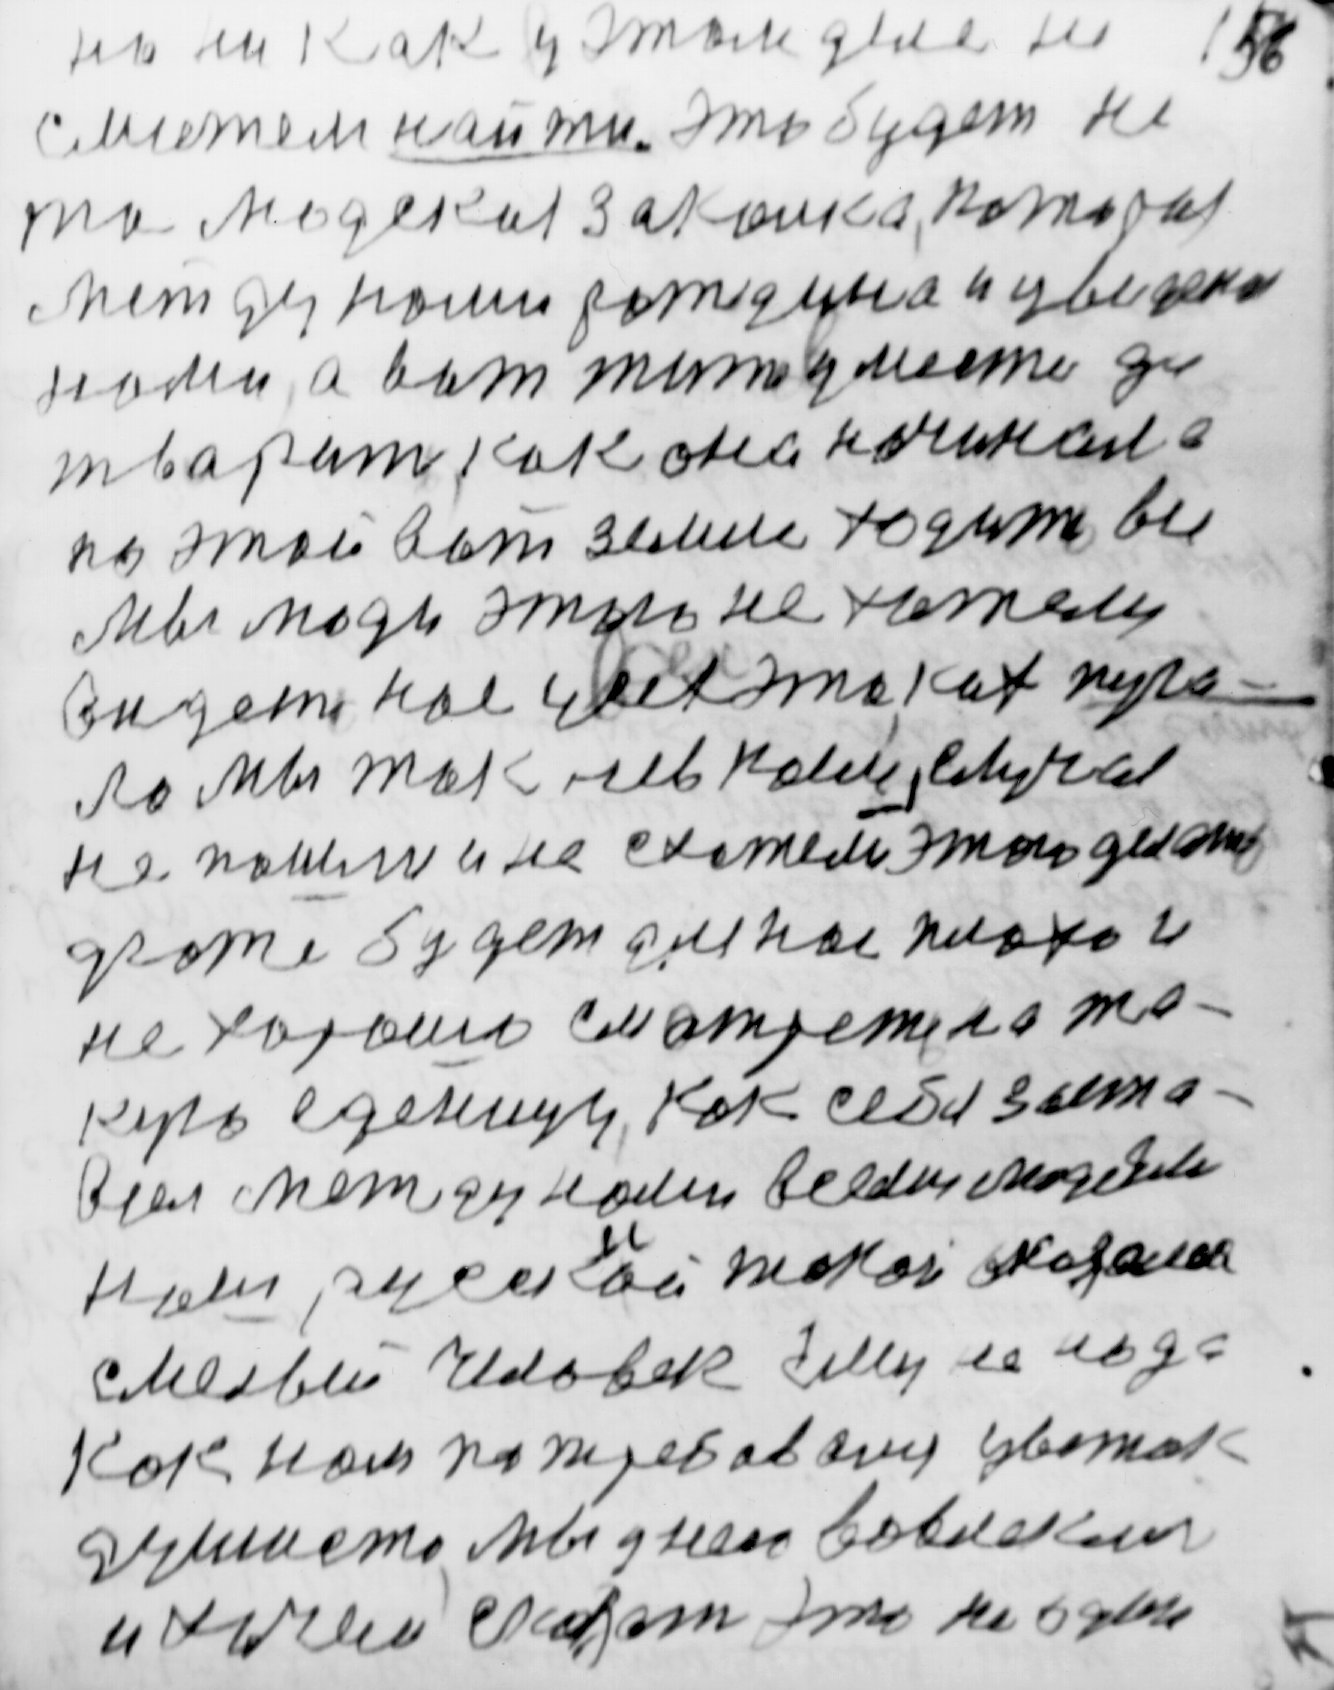 но ни как у этом деле не 156
сможем найти. Это будет не
то людская законка, которая
между нами рождена и уведена
нами, а вот жить у месте да
творить, как она начинала
по этой вот земле ходить вы
мы люди этого не хотели
видеть нас усех это, как пуга-
ло мы так ись нами, случая
не пошли и не схотели этого делать
даже будет для нас плохо и
не хорошо смотреть на та-
кую еденицу, как себя заста-
вил между нами всеми людьми
ними, русский такой хороший
смелый человек ему не нада
как нам потребавану увотак
душисто мы у него вовлекли
и хто чего скажет это не один